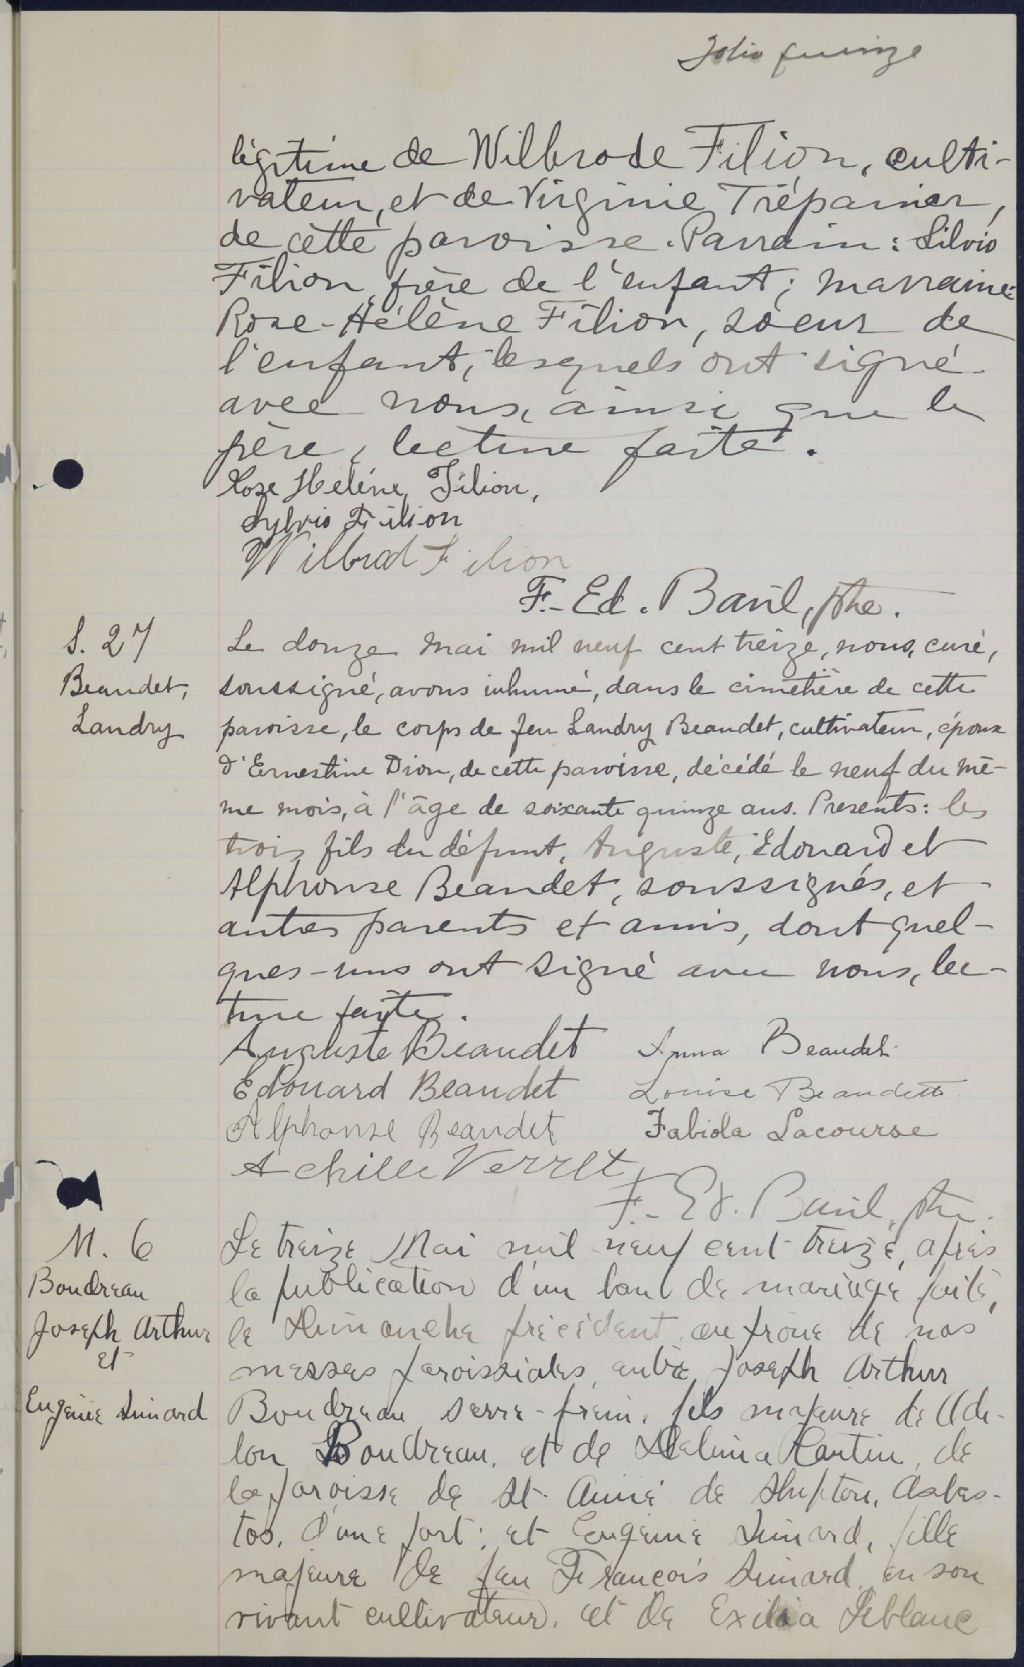 Folio quinze
légitime de Wilbrode Filion, culti-
vateur, et de Virginie Trépanier,
de cette paroisse. Parrain: Silvio
Filion frère de l'enfant; marraine
Rose-Hélène Filion, soeur de
l'enfant, lesquels ont signé
avec nous, ainsi que le
père, lecture faite.
Rose Heléne Filion,
Sylvio Filion
Wilbrod Filion
F.-Ed. Baril, ptre.
S. 27
Beaudet,
Landry
Le douze mai mil neuf cent treize, nous, curé,
soussigné, avons inhumé, dans le cimetière de cette
paroisse, le corps de feu Landry Beaudet, cultivateur, époux
d'Ernestine Dion, de cette paroisse, décédé le neuf du mê-
me mois, à l'âge de soixante quinze ans. Presents: les
trois fils du défunt, Auguste, Edouard et
Alphonse Beaudet, soussignés, et
autres parents et amis, dont quel-
ques-uns ont signé avec nous, lec-
ture faite.
Auguste Beaudet Anna Beaudet
Edouard Beaudet Louise Beaudette
Alphonse Beaudet Fabiola Lacourse
Achille Verret
F.-Ed. Baril, ptre.
M. 6
Boudreau
Joseph Arthur
et
Eugénie Simard
Le treize Mai mil neuf cent treize, après
la publication d'un banc de mariage faite,
le Dimanche précédent au prone de nos
messes paroissiales, entre Joseph Arthur
Boudreau serre-frein, fils majeure de Ade-
lon Boudreau, et de Martin, de
la paroisse de St. de Shipton, Asbes-
tos, d'une part; et Eugénie Simard, fille
majeure de feu François Simard en son
vivant cultivateur, et de Exilia Leblanc